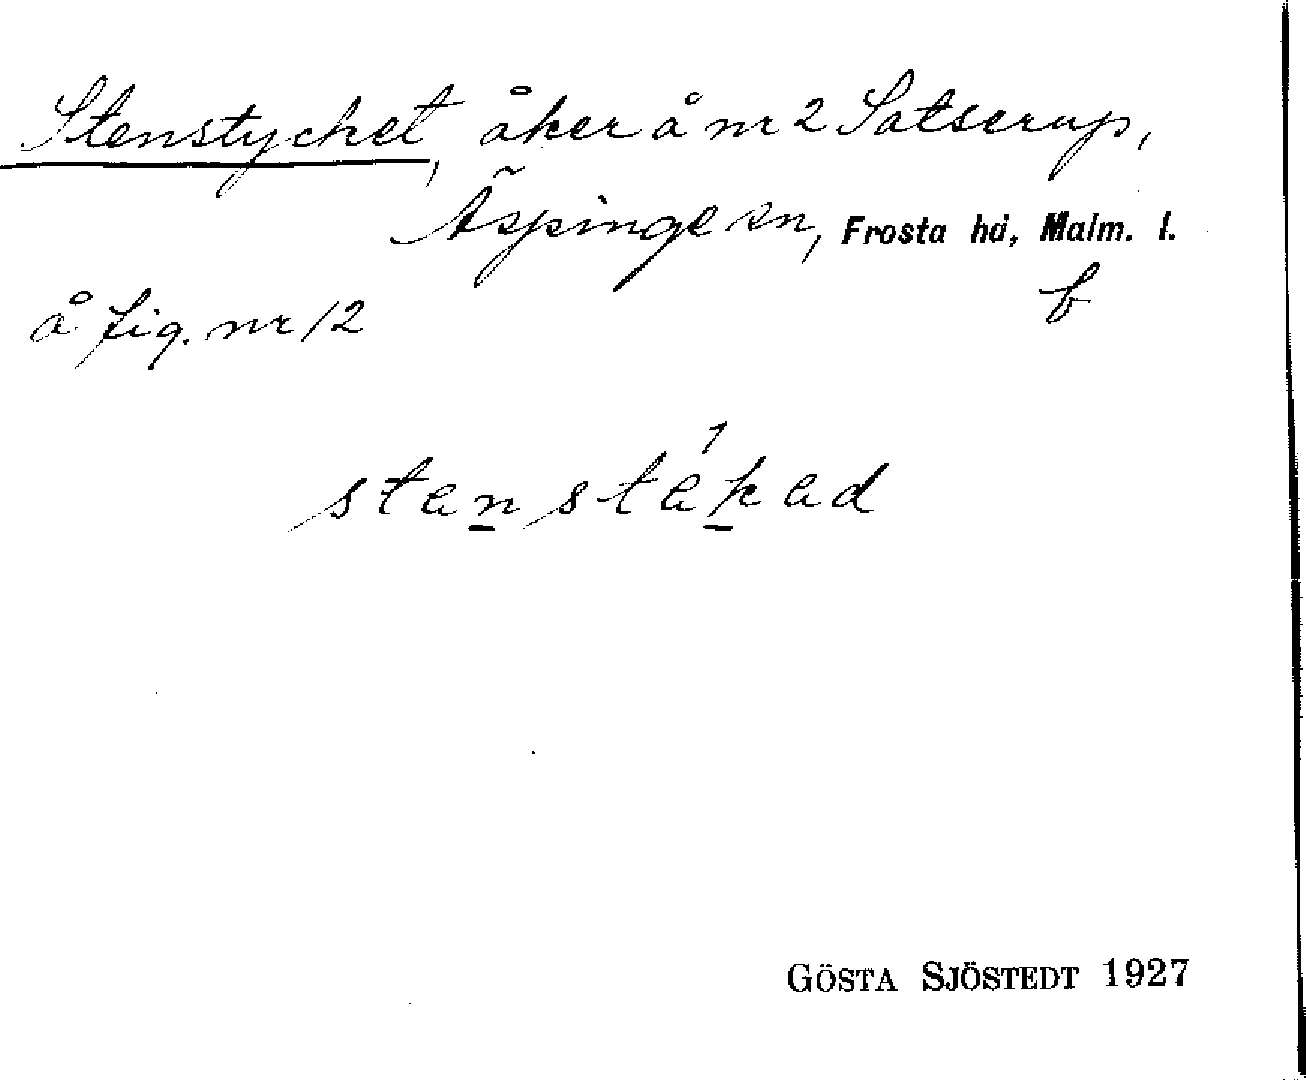 Stenstycket, åker å nr 2 Satserup,
Äspinge sn, Frosta hd, Malm. l.
b
å fig. nr 12
GÖSTA SJÖSTEDT 1927